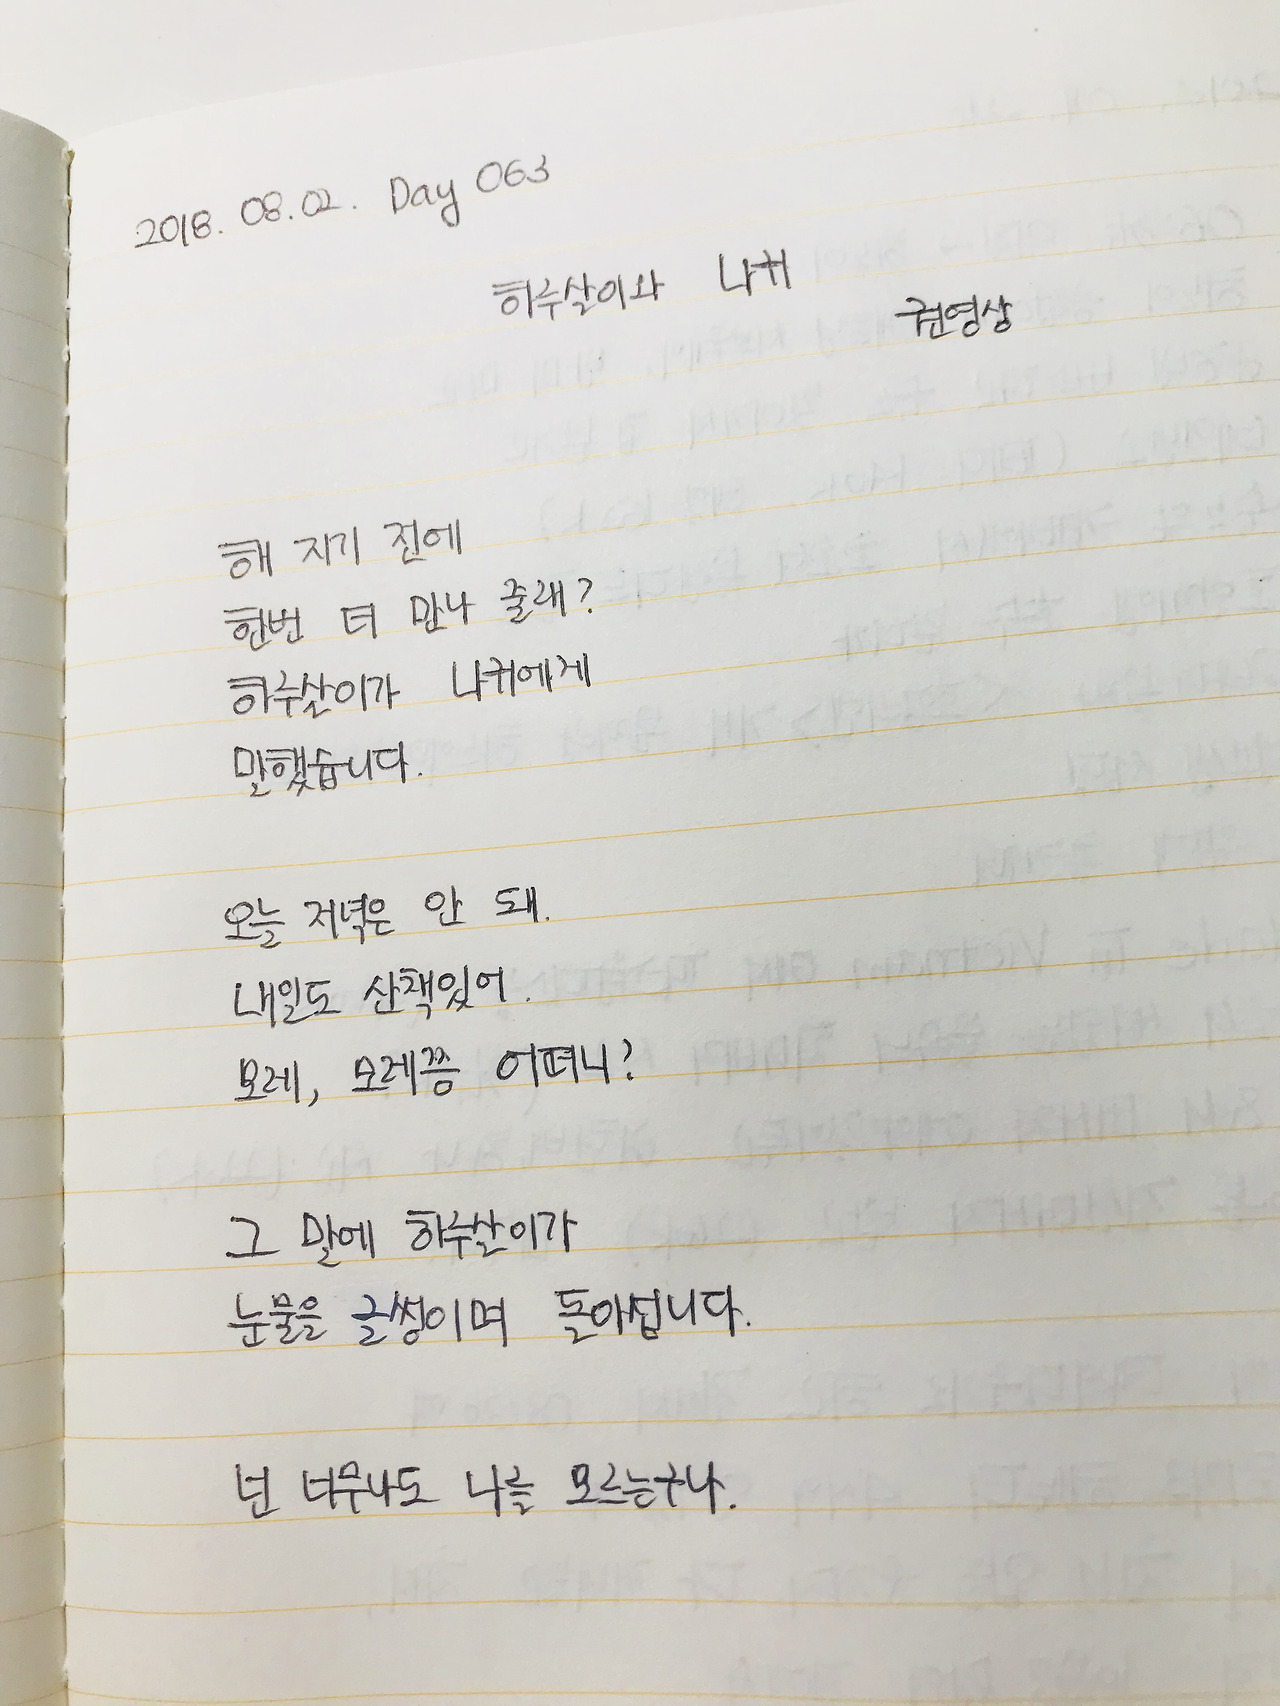 2018. 08. 02. Day 063
하루살이와 나귀
권영상
해 지기 전에
한번 더 만나 줄래?
하루살이가 나귀에게
말했습니다.
오늘 저녁은 안 돼.
내일도 산책있어.
모레, 모레쯤 어떠니?
그 말에 하루살이가
눈물을 글썽이며 돌아섭니다.
넌 너무나도 나를 모르는구나.